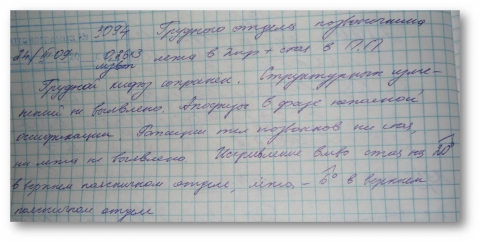 3094 Грудного отдела позвоночника
24/VI-09 0,26мзв лежа в 2 пр + стоя в П.П.
Грудной кифоз сохранен. Структурных изме-
нений не выявлено. Апофизы в фазе начальной
оссификации. Ротации тел позвонков ни стоя,
ни лежа не выявлено Искривление влево стоя на 10°
в верхнем поясничном отделе, лежа, - 6° в верхнем
поясничном отделе